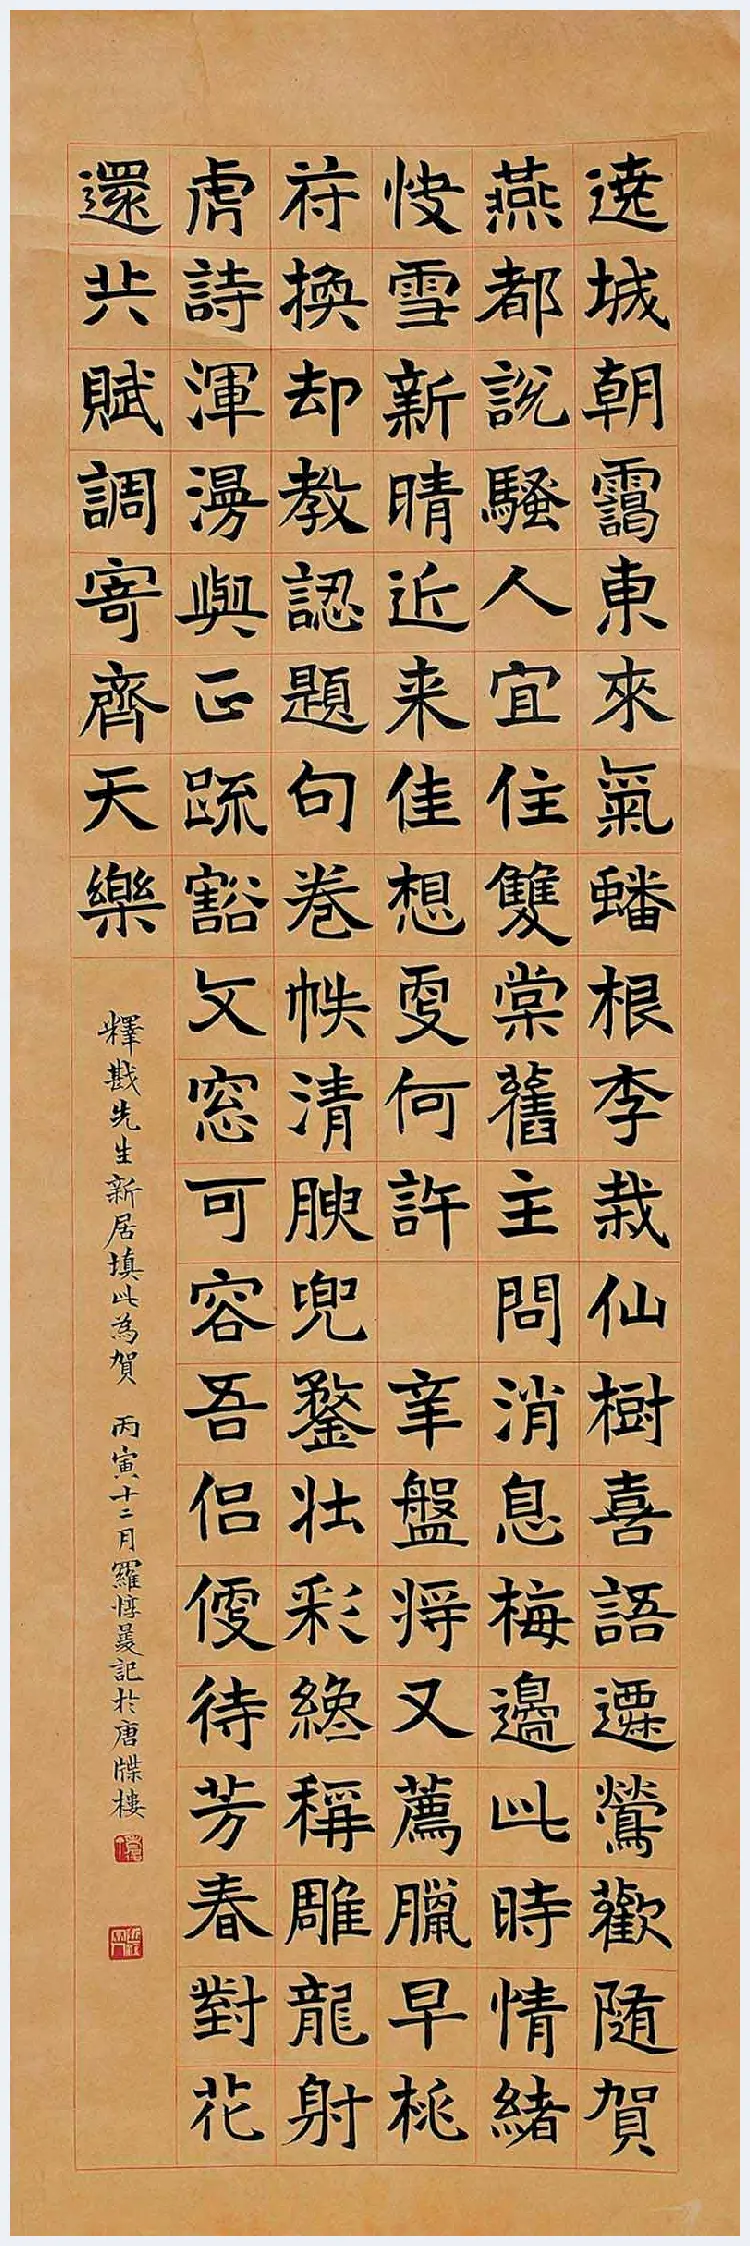 遶城朝靄東來氣蟠根李栽仙樹喜語遷鶯歡随賀
燕都説騷人宜住雙棠舊主問消息梅邊此時情緒
快雪新晴近来佳想更何許 辛盤将又薦臘早桃
符換却教認題句卷帙清腴兜鍪壯彩總稱雕龍射
虎詩渾漫與正疏豁文窓可容吾侶便待芳春對花
還共賦調寄齊天樂
釋戡先生新居填此為賀 丙寅十二月羅惇㬊記於唐牒樓